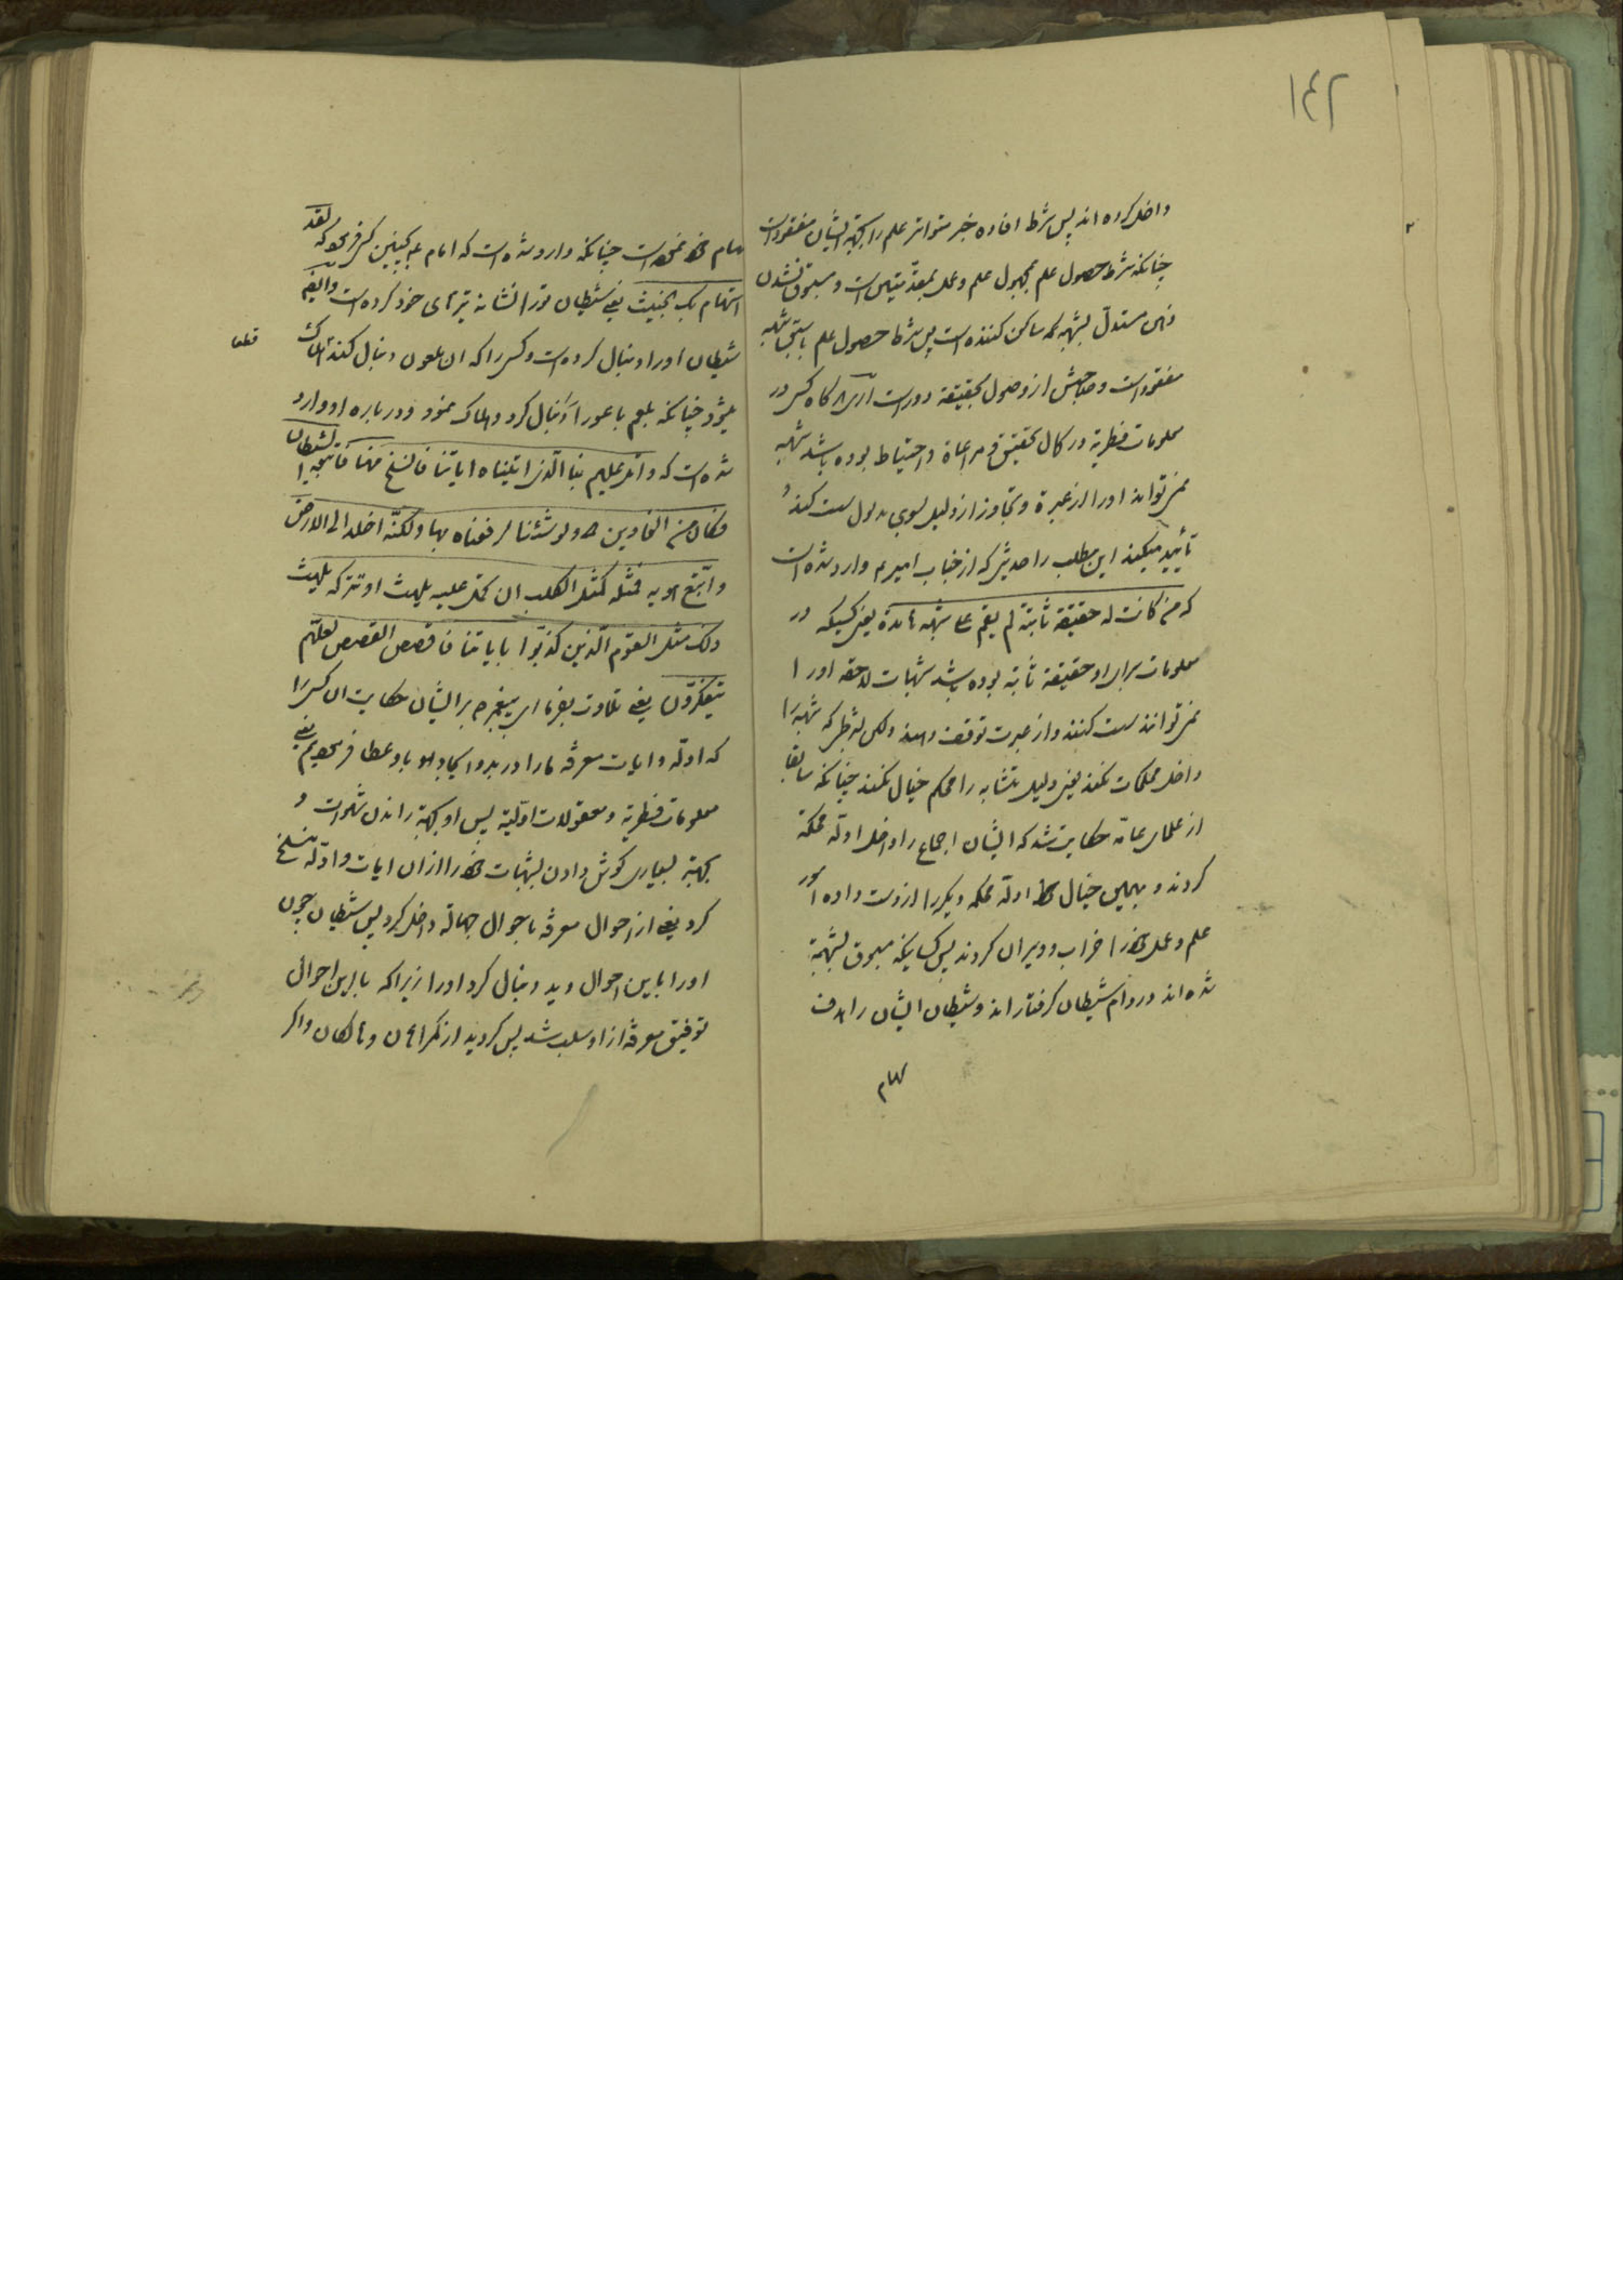 ۱۴۲
داخل کرده اند پس شرط افاده خبر متواتر علم را بجهة ایشان مفقود است
چنانکه شرط حصول علم بمجهول علم و عمل بمقدمتین است و مسبوق نشدن
ذهن مستدل بشبهه که ساکن کننده است پس شرط حصول علم با سبق شبهه
مفقود است و صاحبش از وصول بحقیقة دور است آری هر گاه کسی در
معلومات فطریة در کمال تحقیق و مراعاة و احتیاط بوده باشد شبهه
نمی تواند او را از عبرة و تجاوز از دلیل بسوی مدلول سست کند و
تأیید میکند این مطلب را حدیثی که از جناب امیر ع وارد شده است
که من کانت له حقیقة ثابتة لم یقم علی شبهة هامدة یعنی کسیکه در
معلومات برای او حقیقة ثابته بوده باشد شبهات لاحقه او را
نمی توانند سست کنند و از عبرت توقف دهند ولکن بشرطی که شبهه را
داخل محکمات نکند یعنی دلیل متشابه را محکم خیال نکند چنانکه سابقا
از علمای عامّه حکایت شد که ایشان اجماع را داخل ادلّه محکمة
کردند و بهمین خیال ادلّه محکمه دیگر را از دست داده امور
علم و عمل خود را خراب و ویران کردند پس کسانیکه مسبوق بشبهة
شده اند در دام شیطان گرفتار اند و شیطان ایشان را هدف
سهام
سهام خود نموده است چنانکه وارد شده است که امام ع بچنین کس فرموده که لقد
استهام بک الخبیث یعنی شیطان تو را نشانه تیرهای خود کرده است و ایضا
شیطان او را دنبال کرده است و کسی را که ان ملعون دنبال کند هلاک
قطعا
میشود چنانکه بلعم باعورا را دنبال کرد و هلاک نمود و در باره او وارد
شده است که و اتل علیهم نبا الّذی اتیناه ایاتنا فانسلخ منها فاتبعه الشیطان
فکان من الغاوین و لو شئنا لرفعناه بها و لکنّه اخلد الی الارض
و اتّبع هویه فمثله کمثل الکلب ان تحمل علیه یلهث او تترکه یلهث
ذلک مثل القوم الّذین کذّبوا بایاتنا فاقصص القصص لعلّهم
یتفکّرون یعنی تلاوت بفرما ای پیغمبر ص بر ایشان حکایت ان کسی را
که ادلّه و ایات معرفة ما را در بدو ایجاد او باو عطا فرمودیم یعنی
معلومات فطریّة و معقولات اوّلیّة پس او بجهة راندن شهوات و
بجهة بسیاری گوش دادن بشبهات خود را از ان ایات و ادلّه منسلخ
کرد یعنی از احوال معرفة باحوال جهالة داخل کرد پس شیطان چون
او را باین احوال دید دنبال کرد او را زیرا که با این احوال
توفیق معرفة از او سلب شد پس گردید از گمراهان و هالکان و اگر